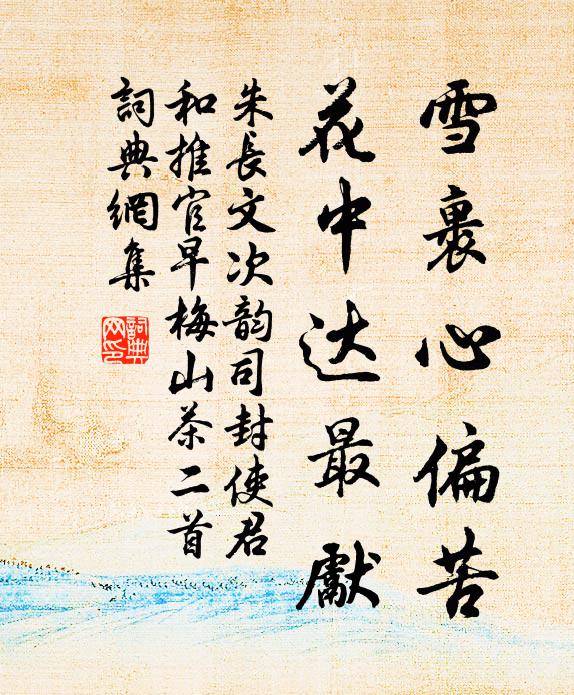 雪裹心偏苦
花中达最獻
朱長文次韵司封使君
和推官早梅山茶二首
詞典網集
詞典
网印